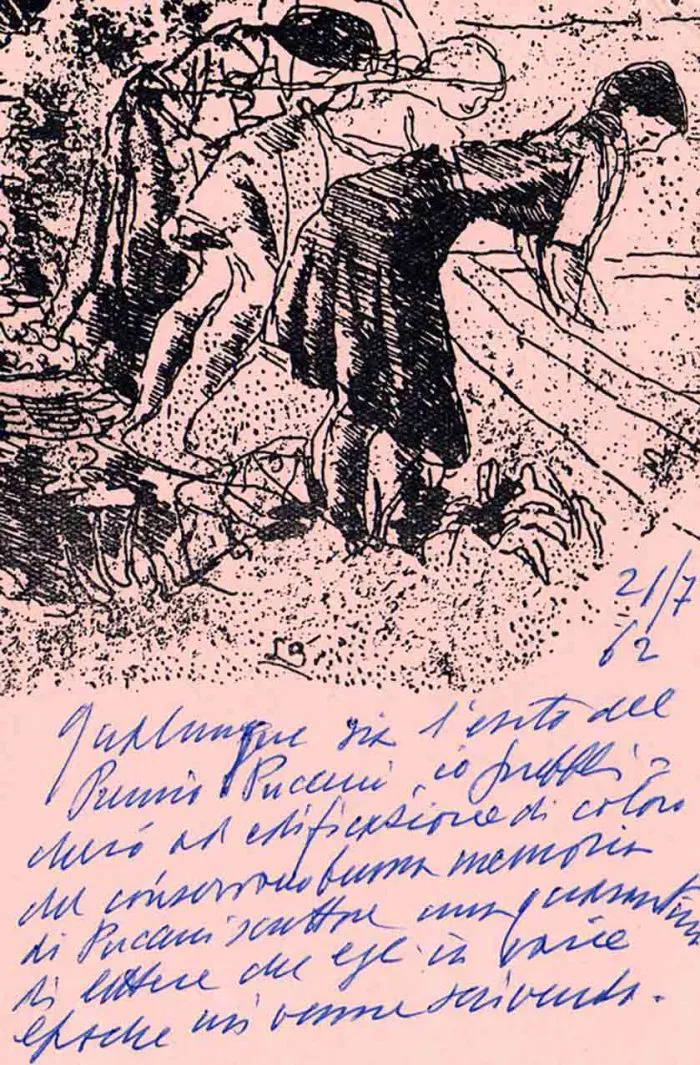 21/7
62
Qualunque sia l'esito del
Premio Puccini, io pubbli=
cherò ad edificazione di coloro
che conservano buona memoria
di Puccini scrittore una quarantina
di lettere che egli in varie
epoche mi venne scrivendo.